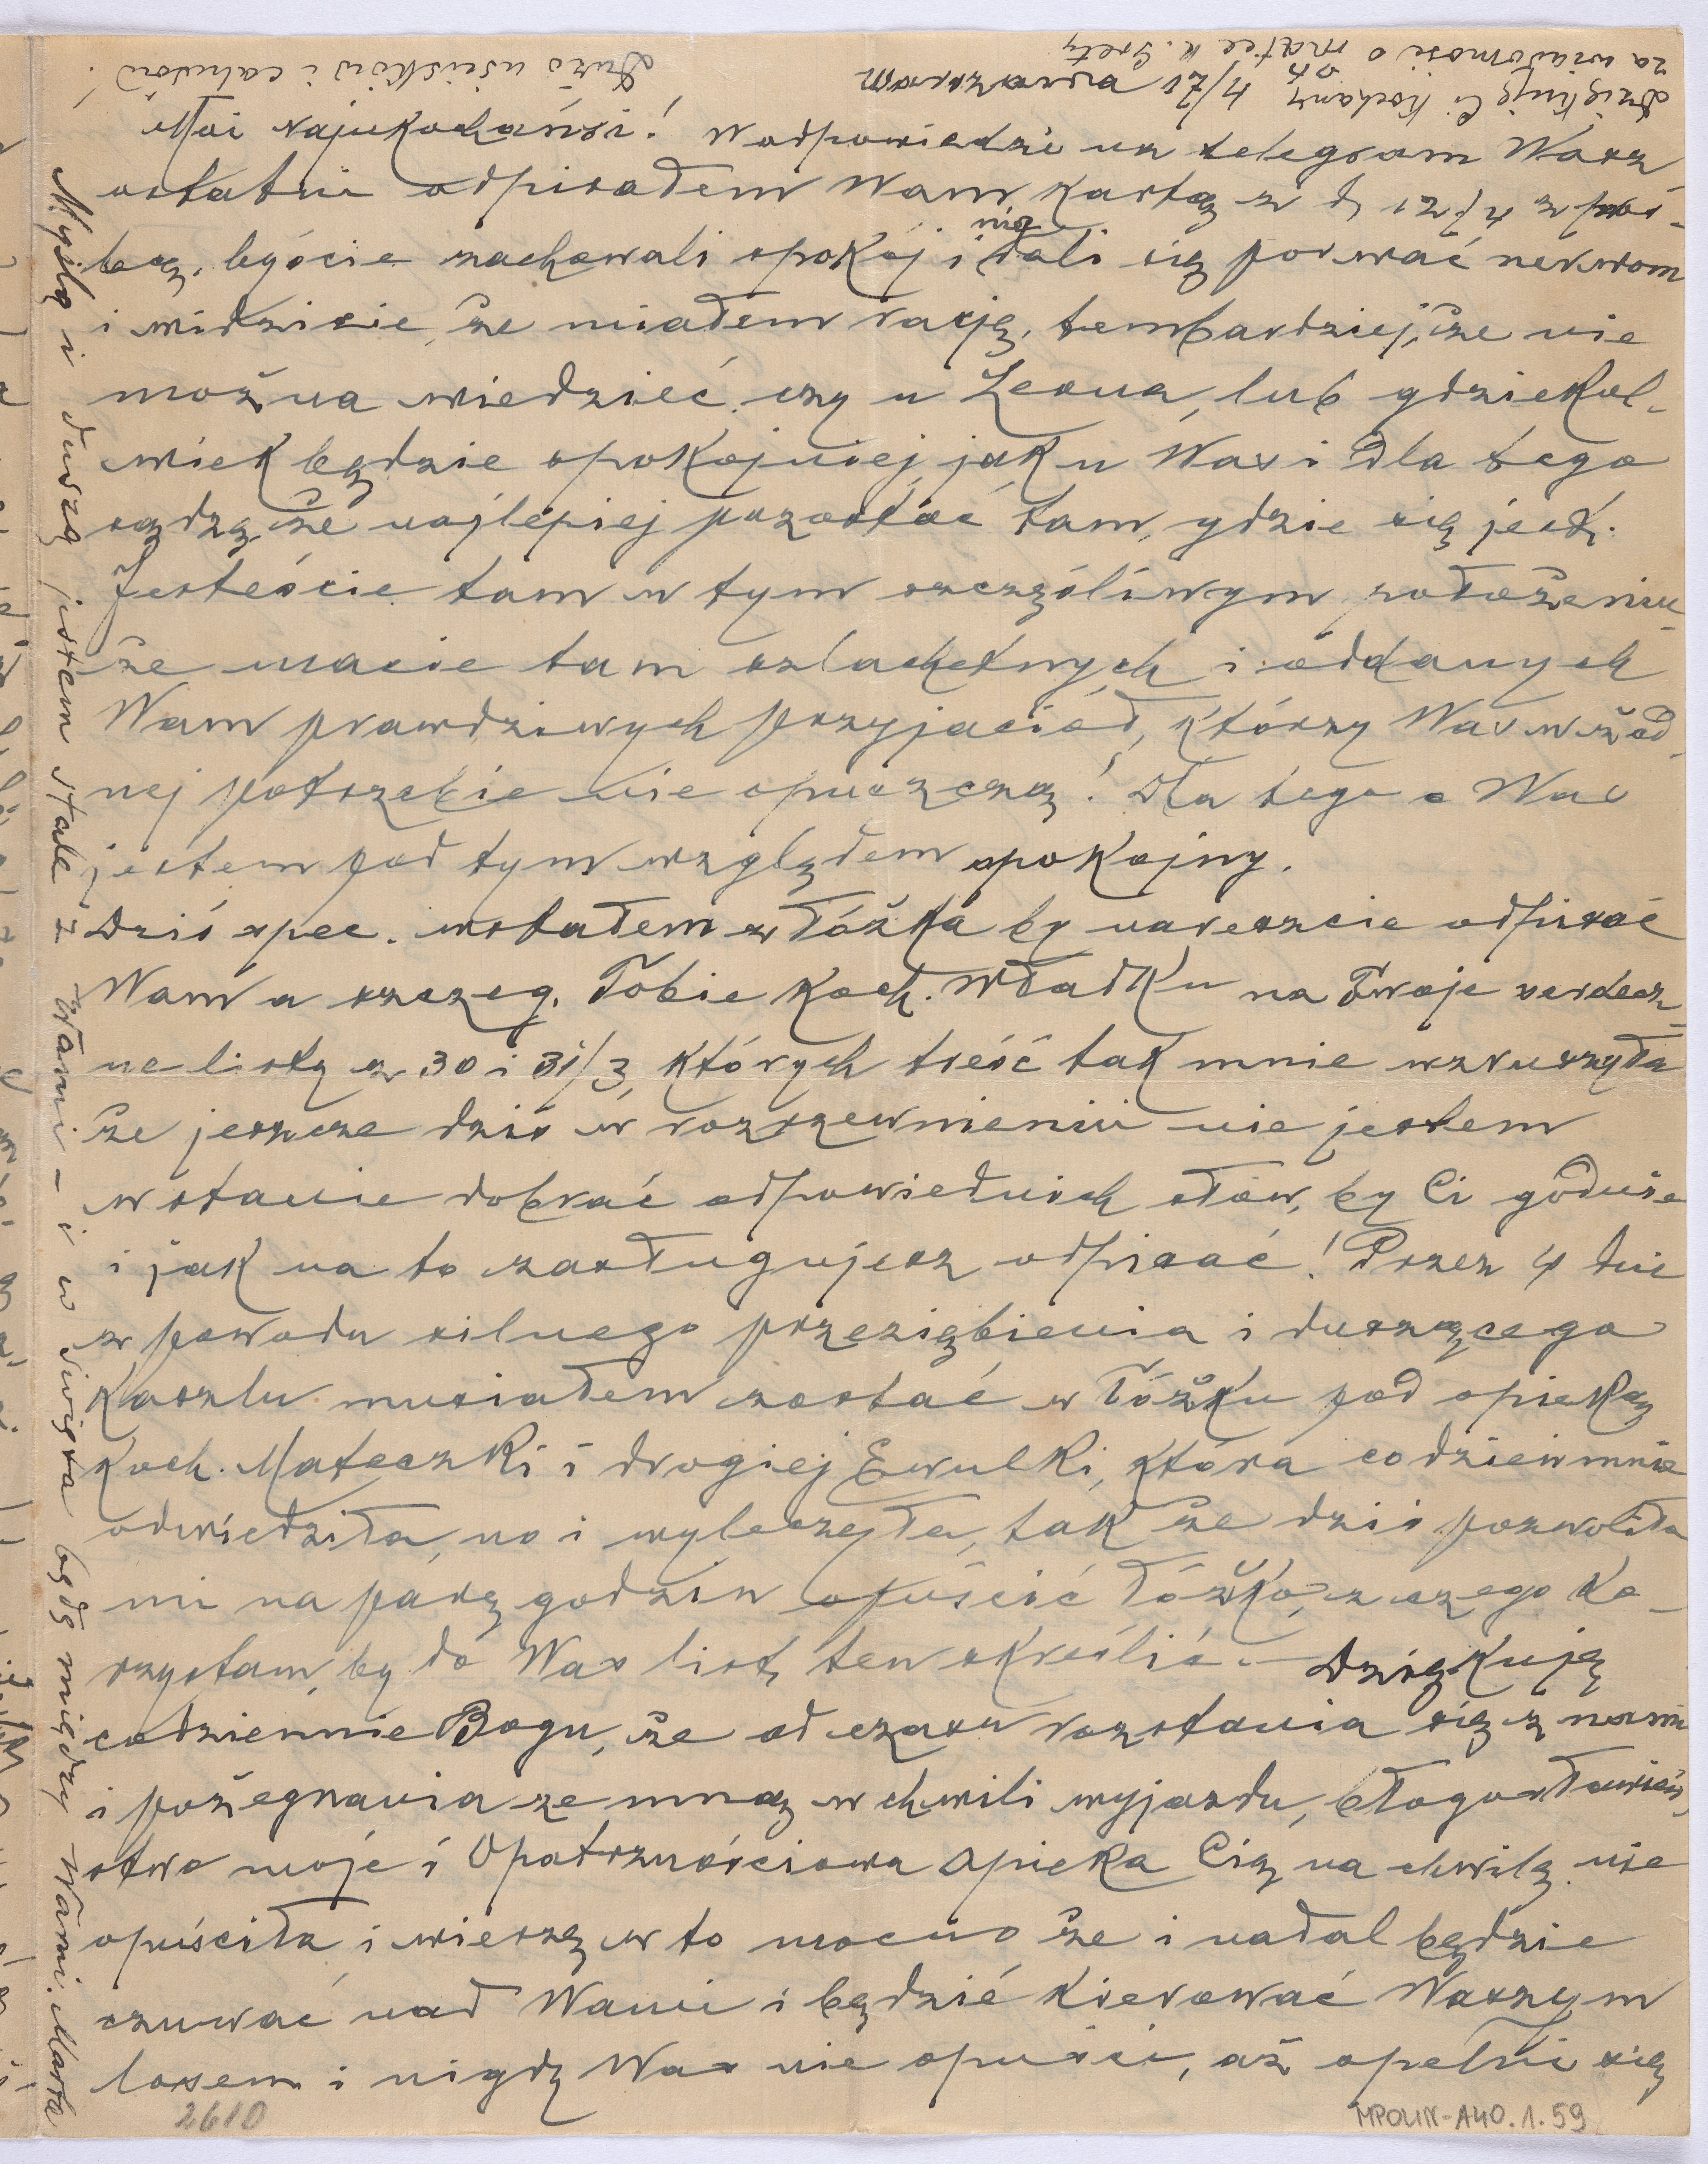 Dziękuję Ci kochany
za wiadomość o matce u. Grety
Dużo uścisków i całusów!
Moi Najukochańsi! W odpowiedzi na telegram Wasz
ostatni odpisałem Wam kartą z d
bą, byście zachowali spokój i nie dali się porwać nerwom
i widzicie, że miałem rację, tembardziej, że nie
można wiedzieć, czy u Leona, lub gdziekol-
wiek będzie spokojniej jak u Was i dla tego
sądzę, że najlepiej pozostać tam, gdzie się jest.
Jesteście tam w tym szczęśliwym położeniu,
że macie tam szlachetnych i oddanych
Wam prawdziwych przyjaciół, którzy Was w żad-
nej potrzebie nie opuszczą! Dla tego o Was
jestem pod tym względem spokojny.
Dziś spec. wstałem z łóżka by nareszcie odpisać
Wam a szczeg. Tobie Koch. Władku na Twoje serdecz-
ne listy z 30 i 31/3, których treść tak mnie wzruszyła
że jeszcze dziś w rozrzewnieniu nie jestem
w stanie dobrać odpowiednich słów, by Ci godnie
i jak na to zasługujesz odpisać! Przez 4 dni
z powodu silnego przeziębienia i duszącego
kaszlu musiałem zostać w łóżku pod opieką
Koch. Mateczki i drogiej Ewulki, która codzień mnie
odwiedziła, no i wyleczyła, tak że dziś pozwoliła
mi na parę godzin opuścić łóżko, z czego ko-
rzystam, by do Was list ten skreślić. – Dziękuję
codziennie Bogu, że od czasu rozstania się z nami
i pożegnania ze mną w chwili wyjazdu, błogosławień-
stwo moje i Opatrznościowa opieka Cię na chwilę nie
opuściła i wierzę w to mocno że i nadal będzie
czuwać nad Wami i będzie kierować Waszym
losem i nigdy Was nie opuści, aż spełni się
Myślą i duszą jestem stale z Wami – i w święta będę między Wami. Marta
2610
MPOLIN-A40.1.59